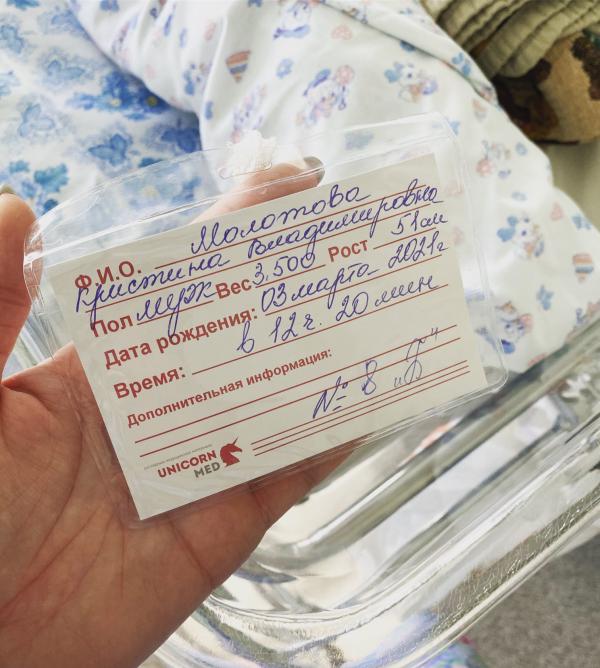 Ф.И.О. Молотова
Кристина Владимировна
Пол муж Вес 3,500 Рост 51см
Дата рождения: 03 марта 2021г
Время: в 12ч. 20 мин
Дополнительная информация:
№ 8
UNICORN
MED